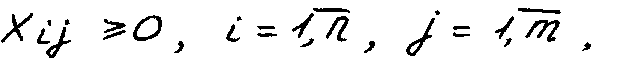 Xij ≥ 0, i = 1,n̅, j = 1,m̅.